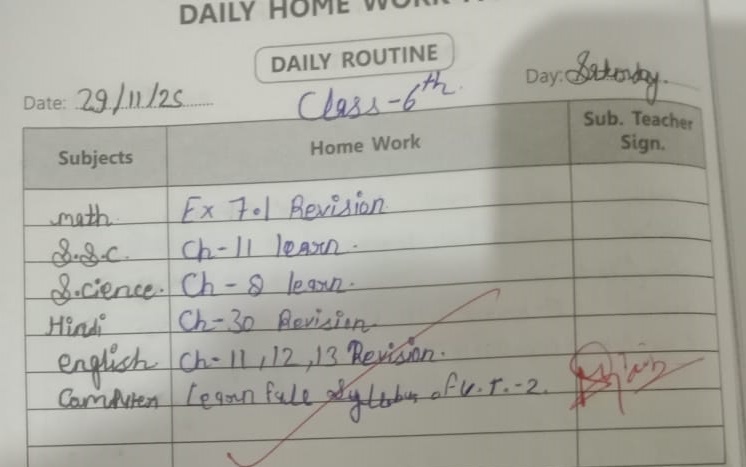 DAILY HOME WORK
DAILY ROUTINE
Date: 29/11/25
Class-6th.
Day: Saturday.
Subjects Home Work Sub. Teacher Sign.
math. Ex 7.1 Revision
S.S.C. Ch-11 learn.
S.cience. Ch-8 learn.
Hindi Ch-30 Revision.
english Ch-11,12,13 Revision.
learn of U.T.-2.